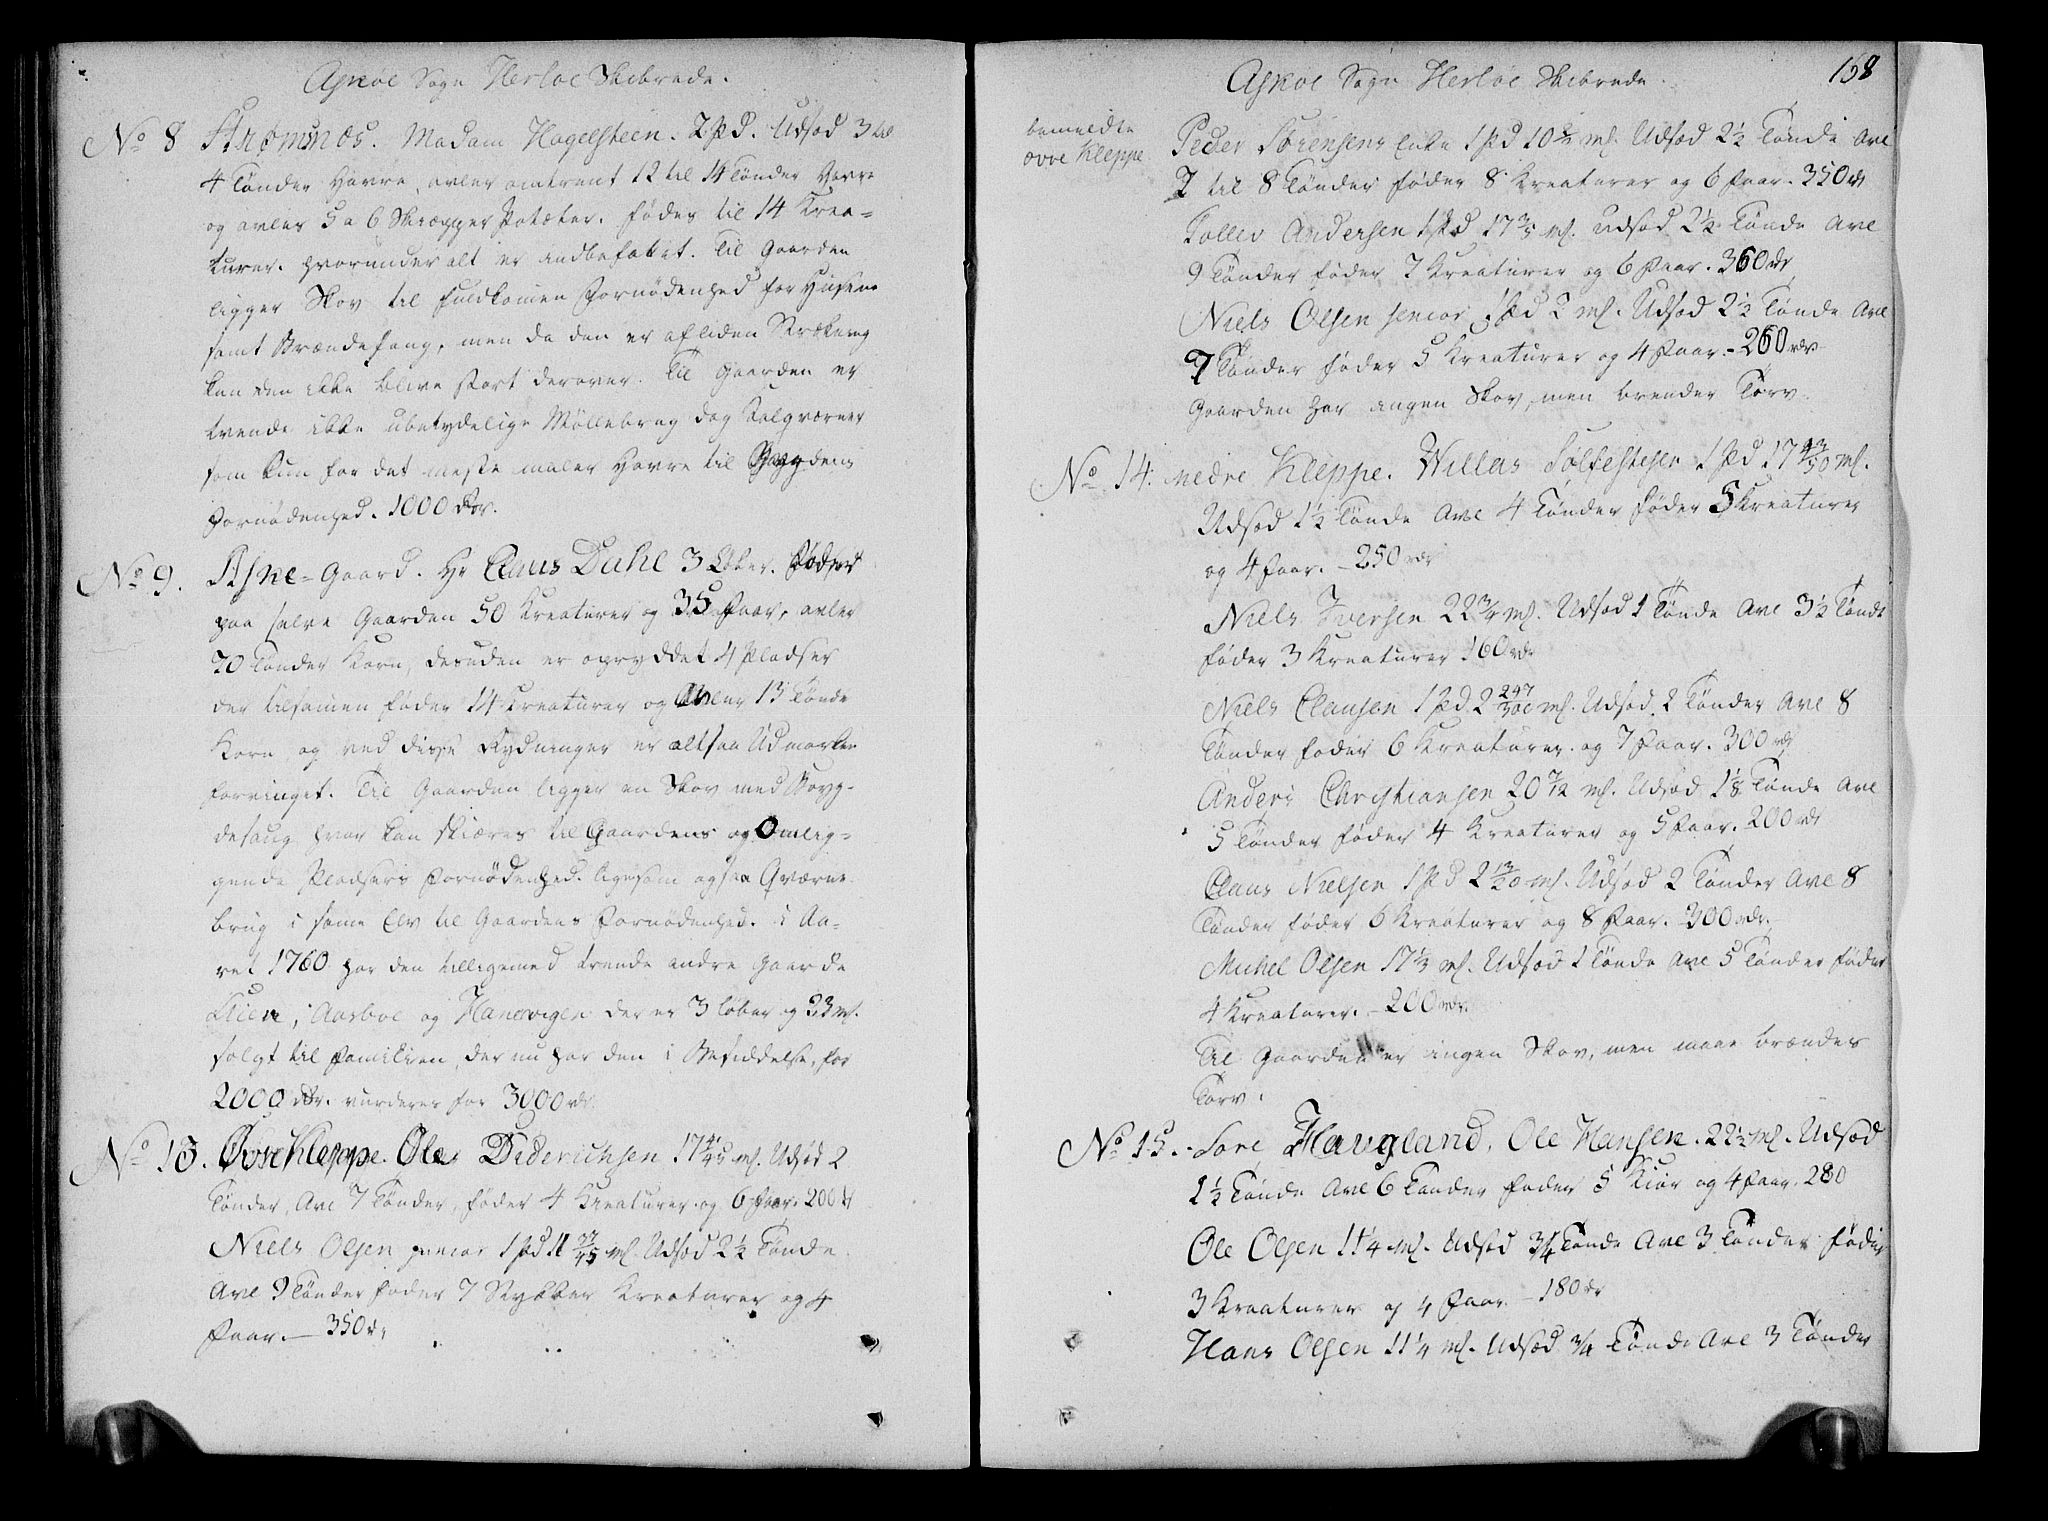 Askøe Sogn Herløe Skibrede.
No 8 Strømsnæs. Madam Hagelsteen. 2 Pd. Udsæd 3 til
4 Tønder Havre, avler omtrent 12 til 14 Tønder Havre
og avler 5 a 6 Skiæpper Potæter. føder til 14 Krea=
turer. hvorunder alt er indbefattet. Til Gaarden
ligger Skov til fuldkomen Fornødenhed for Husene
samt Brændefang, men da den er af liden Strækning
kan den ikke blive stort derover. Til Gaarden er
tvende ikke ubetydelige Møllebrug dog Kalgværner
som kun for det meste maler Havre til Bøygdens
Fornødenhed. 1000 Rdr.
No 9. Aske=Gaard. Hr Claus Dahl 3 Løber. Føder
paa selve Gaarden 50 Kreaturer og 35 Faar, avler
70 Tønder Korn, desuden er opryddet 4 Pladser
der tilsamen føder 14 Kreaturer og Avler 13 Tønde
Korn og ved disse Rydninger er altsaa Udmarken
forringet. Til Gaarden ligger en Skov med Bøyg-
desaug hvor kan skiæres til Gaardens og Omlig=
gende Pladsers Fornødenhed. ligesom ogsaa Qværne
brug i same Elv til Gaardens Fornødenhed. i Aa=
ret 1760 har den tilligemed trende andre Gaarde
Lien, Aasboe og Hanevigen der er 3 løber og 23 mk.
solgt til Familien, der nu har den i Besiddelse, for
2000 Rdr. vurderes for 3000 rdr.
No 13. Øvre Kleppe. Ole Diderichsen 17 4/45 mk. Udsæd 2
Tønder, Avl 7 Tønder, føder 4 Kreaturer og 6 Faar. 200 r
Niels Olsen junior 1 Pd 11 37/45 mk. Udsæd 2½ Tønde
Avl 9 Tønder føder 7 Stykker Kreaturer og 4
Faar. — 350 r.
Askøe Sogn Herløe Skibrede.
168
bemeldte
øvre Kleppe
Peder Sørensens Enke 1 Pd 10 mk. Udsæd 2½ Tønde Avl
7 til 8 Tønder føder 8 Kreaturer og 6 Faar. 350 r
Tollev Andersen 1 Pd 17 3/5 mk. Udsæd 2½ Tønde Avl
9 Tønder føder 7 Kreaturer og 6 Faar. 360 rdr
Niels Olsen senior 1 Pd 2 mk. Udsæd 2½ Tønde Avl
7 Tønder føder 5 Kreaturer og 4 Faar. - 260 rdr
Gaarden har ingen Skov, men brender Tørv.
No 14. nedre Kleppe. Willas Solfestesen 1 Pd 17 43/50 mk.
Udsæd 1½ Tønde Avl 4 Tønder føder 5 Kreaturer
og 4 Faar. — 250 rdr
Niels Iversen 22¾ mk. Udsæd 1 Tønde Avl 3½ Tønde
føder 3 Kreaturer 160 rdr
Niels Clausen 1 Pd. 2 247/300 mk. Udsæd 2 Tønder Avl 8
Tønder føder 6 Kreaturer og 7 Faar. 300 rdr
Anders Christiansen 20 7/12 mk. Udsæd 1⅛ Tønde Avl
5 Tønder føder 4 Kreaturer og 5 Faar. 200 rdr
Claus Nielsen 1 Pd 2 13/20 mk. Udsæd 2 Tønder Avl 8
Tønder føder 6 Kreaturer og 8 Faar. 300 rdr.
Michel Olsen 17⅓ mk. Udsæd 1 Tønde Avl 5 Tønder føder
4 Kreaturer. — 200 rdr.
Til Gaarden er ingen Skov, men maae brændes
Tørv.
No 15. Søre Haugland, Ole Hansen. 22½ mk. Udsæd
1½ Tønde Avl 6 Tønder føder 5 Kiør og 4 Faar. 280
Ole Olsen 11¼ mk. Udsæd ¾ Tønde Avl 3 Tønder føder
3 Kreaturer og 4 Faar. — 180 rdr
Hans Olsen 11¼ mk. Udsæd ¾ Tønde Avl 3 Tønder